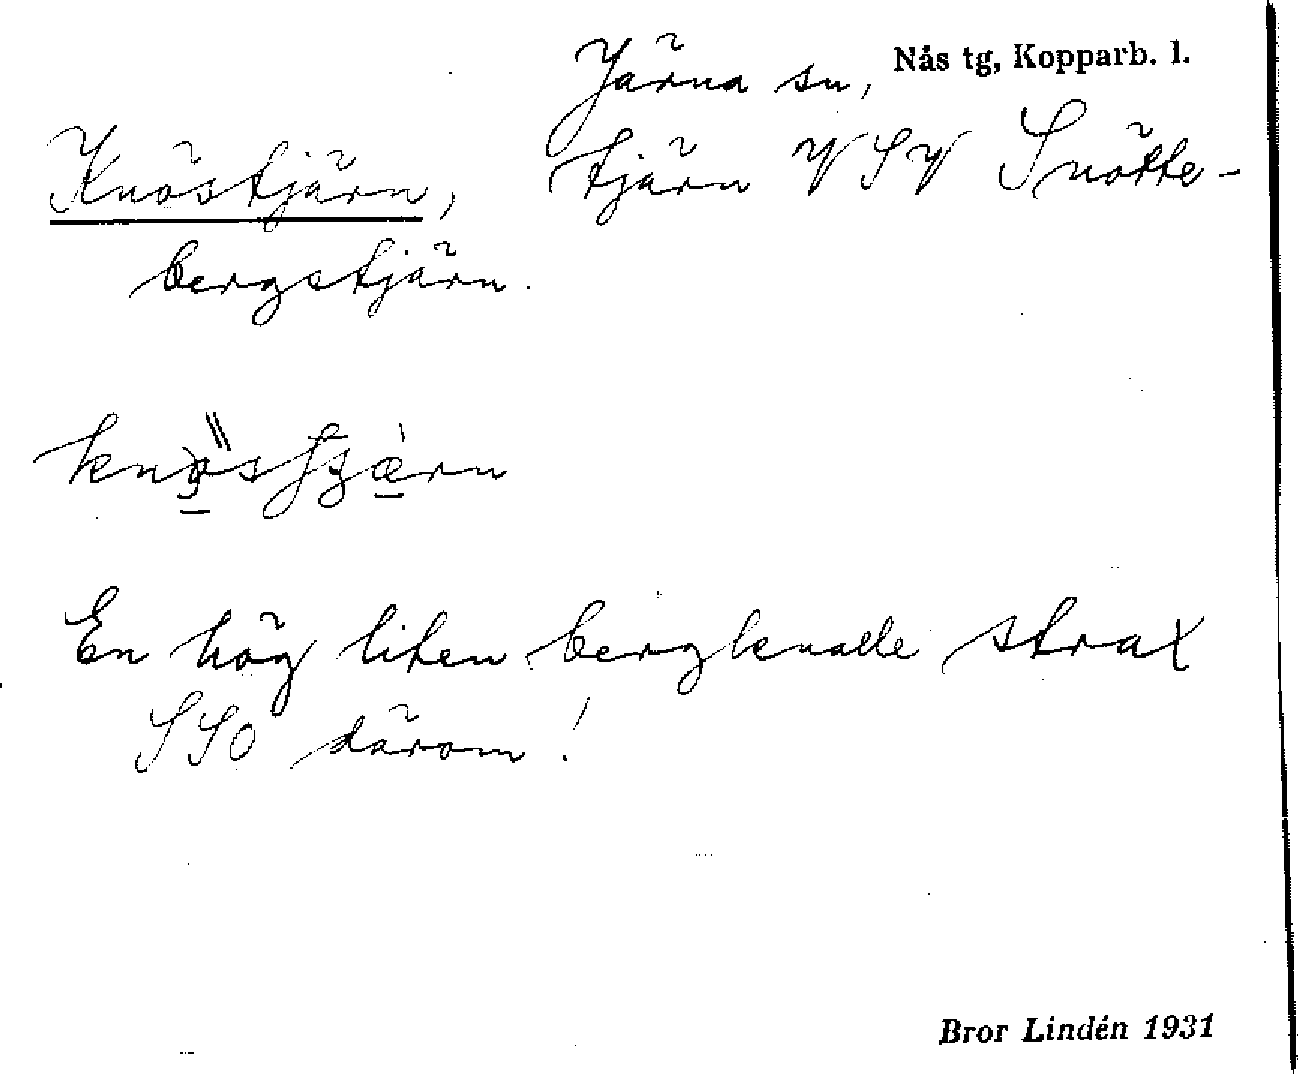 Järna sn, Nås tg, Kopparb. l.
Knöstjärn, tjärn VSV Snötte-
bergstjärn.
En hög liten bergknalle strax
SSO därom!
Bror Lindén 1931